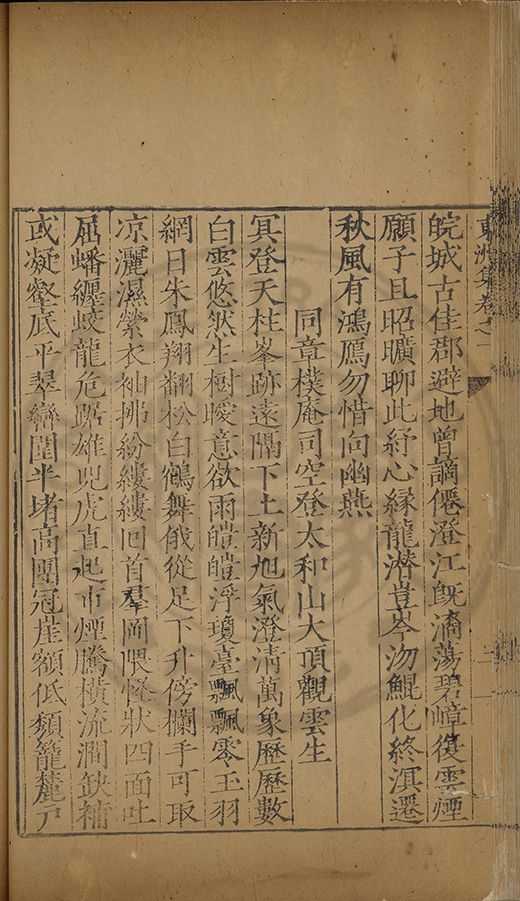 東洲集卷之一
皖城古佳郡避地曾謫僊澄江旣滴蕩碧嶂復雲煙
願子且昭曠聊此紓心緣龍潛豈岑沕鯤化終溟遷
秋風有鴻鴈勿惜向幽燕
同章樸庵司空登太和山大頂觀雲生
冥登天柱峯跡遠隔下土新旭氣澄清萬象歷歷數
白雲悠然生樹曖意欲雨皚皚浮瓊臺飄飄零玉羽
網日朱鳳翔翻松白鶴舞俄從足下升傍欄手可取
凉灑濕縈衣袖拂紛縷縷回首羣岡隈怪狀四面吐
屈蟠纏蛟龍危踞雄兕虎直起市煙騰橫流澗缺補
或凝壑底平翠巒圍半堵高團冠崖額低類籠麓戸